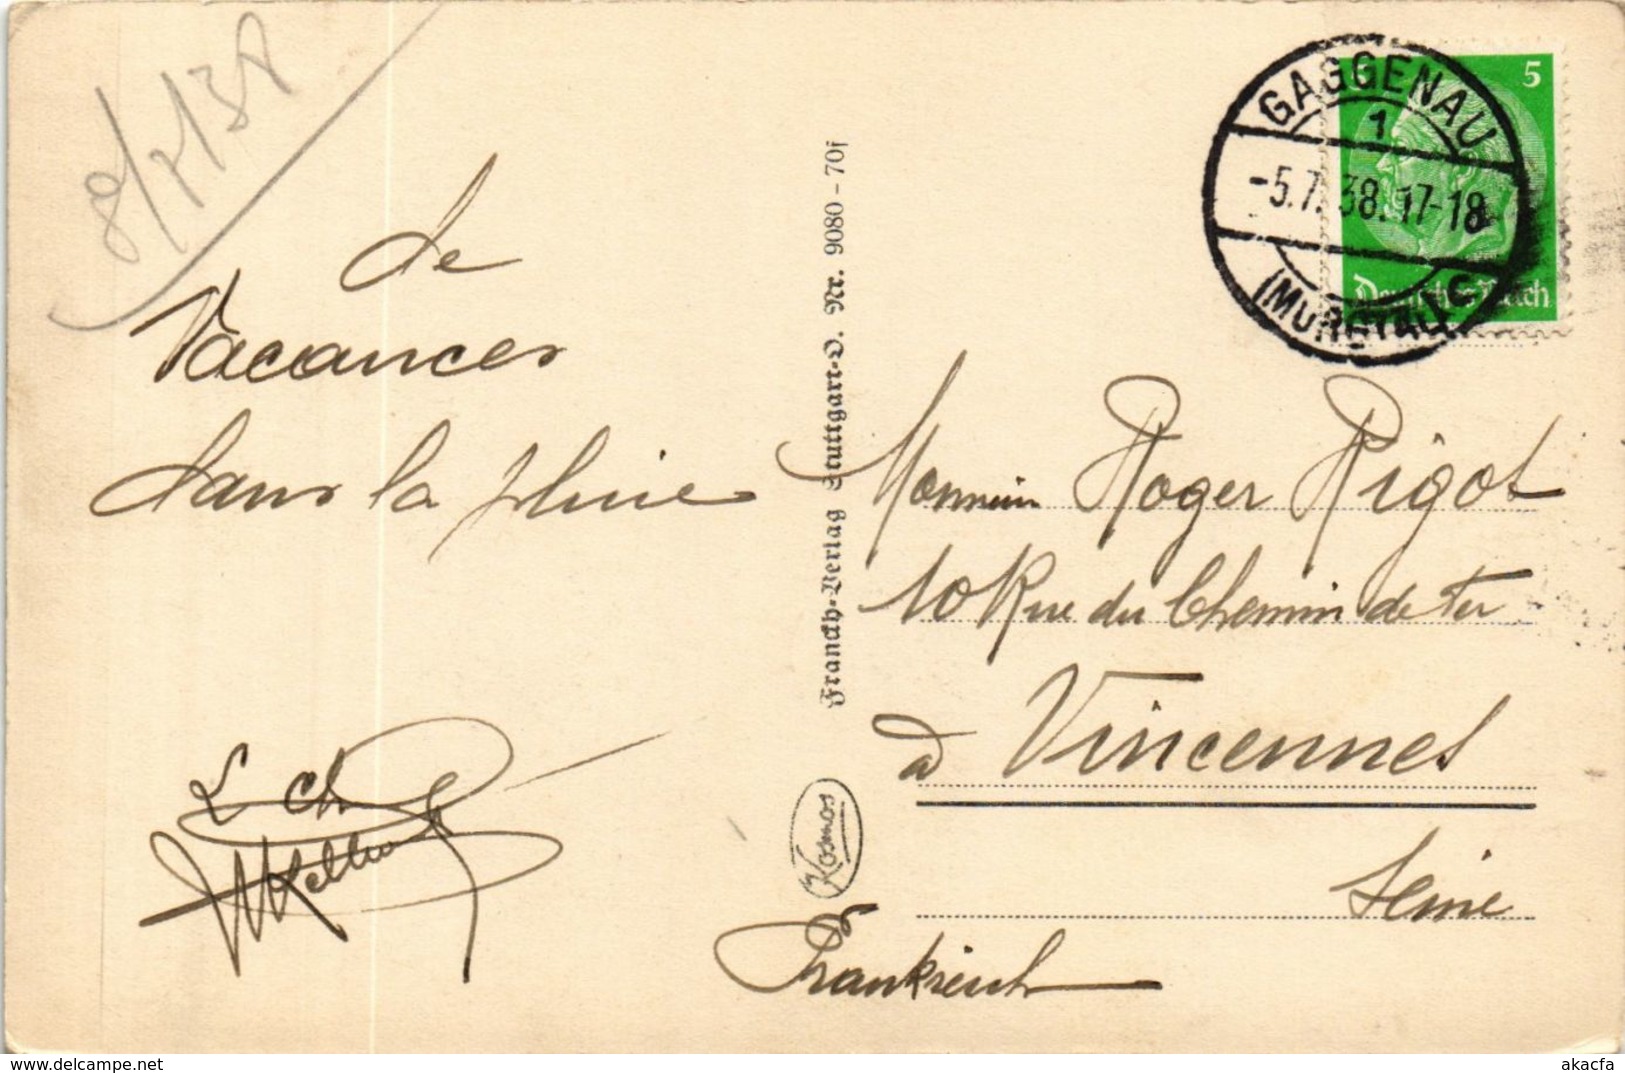 8/7/38
de
Vacances
dans la pluie
L ch
Franckh-Verlag Stuttgart-O. Nr. 9080 - 70f
Kosmos
GAGGENAU
1
-5.7.38.17-18
(MURGTAL)
c
5
Deutsches Reich
Monsieur Roger Rigot
10 Rue du Chemin de Fer
à Vincennes
Seine
Frankreich
www.delcampe.net
akacfa